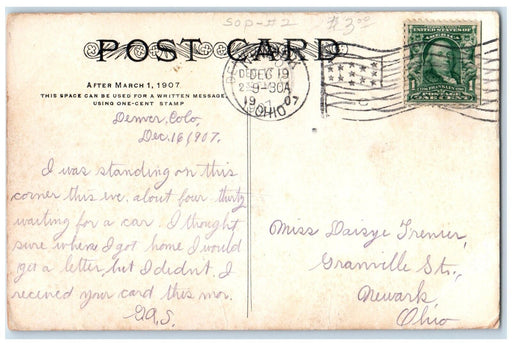 SOP-#2
$3.00
POST CARD
AFTER MARCH 1, 1907
THIS SPACE CAN BE USED FOR A WRITTEN MESSAGE
USING ONE-CENT STAMP
Denver, Colo,
Dec. 16, 1907.
I was standing on this
corner this eve, about four thirty
waiting for a car. I thought
sure when I got home I would
get a letter but I didn't. I
received your card this mor.
E.A.S.
DEC 19
9-30A
1907
OHIO
Miss Daisye Trenier,
Granville St.,
Newark,
Ohio